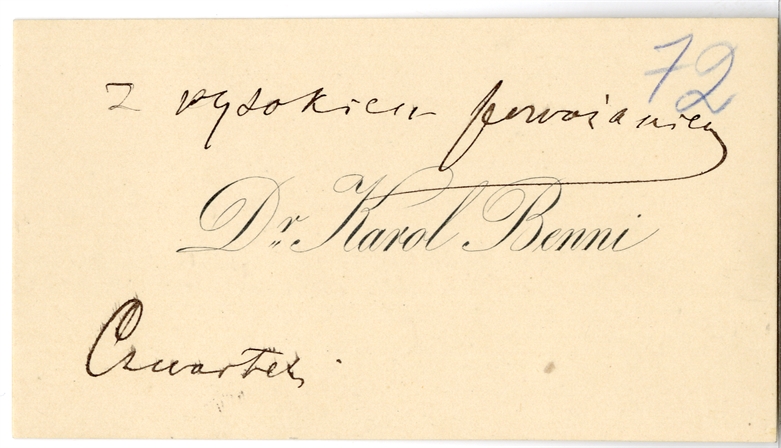 72
z wysokiem poważaniem
Dr. Karol Benni
Czwartek.